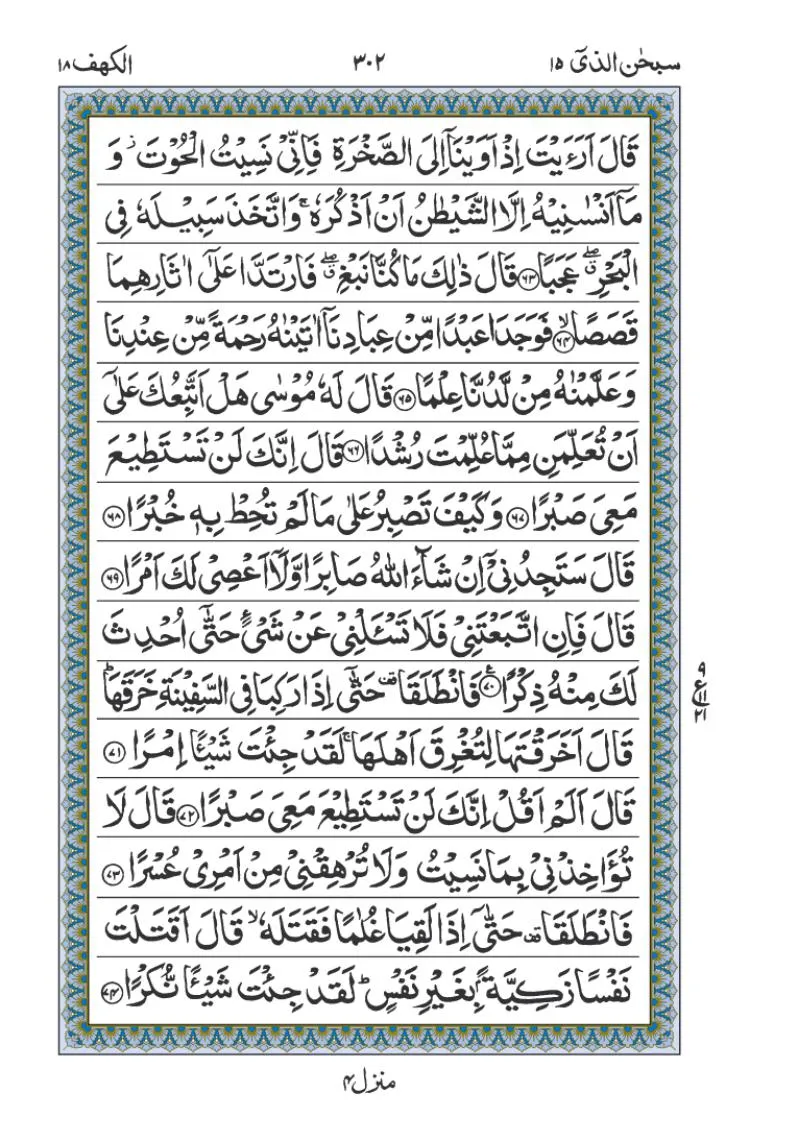 سبحٰن الذیٓ ۱۵ ۳۰۲ الکهف ۱۸
قَالَ اَرَءَيْتَ اِذْ اَوَيْنَاۤ اِلَى الصَّخْرَةِ فَاِنِّىْ نَسِيْتُ الْحُوْتَ ز وَ
مَاۤ اَنْسٰنِيْهُ اِلَّا الشَّيْطٰنُ اَنْ اَذْكُرَهٗ ۚ وَاتَّخَذَ سَبِيْلَهٗ فِى
الْبَحْرِ ۖق عَجَبًا ﴿۶۳﴾ قَالَ ذٰلِكَ مَا كُنَّا نَبْغِ ۖق فَارْتَدَّا عَلٰٓى اٰثَارِهِمَا
قَصَصًا ۙ﴿۶۴﴾ فَوَجَدَا عَبْدًا مِّنْ عِبَادِنَاۤ اٰتَيْنٰهُ رَحْمَةً مِّنْ عِنْدِنَا
وَعَلَّمْنٰهُ مِنْ لَّدُنَّا عِلْمًا ﴿۶۵﴾ قَالَ لَهٗ مُوْسٰى هَلْ اَتَّبِعُكَ عَلٰٓى
اَنْ تُعَلِّمَنِ مِمَّا عُلِّمْتَ رُشْدًا ﴿۶۶﴾ قَالَ اِنَّكَ لَنْ تَسْتَطِيْعَ
مَعِىَ صَبْرًا ﴿۶۷﴾ وَكَيْفَ تَصْبِرُ عَلٰى مَا لَمْ تُحِطْ بِهٖ خُبْرًا ﴿۶۸﴾
قَالَ سَتَجِدُنِىْۤ اِنْ شَآءَ اللّٰهُ صَابِرًا وَّلَاۤ اَعْصِىْ لَكَ اَمْرًا ﴿۶۹﴾
قَالَ فَاِنِ اتَّبَعْتَنِىْ فَلَا تَسْـَٔلْنِىْ عَنْ شَىْءٍ حَتّٰٓى اُحْدِثَ
لَكَ مِنْهُ ذِكْرًا ﴿۷۰﴾ ع فَانْطَلَقَا ۥقف حَتّٰٓى اِذَا رَكِبَا فِى السَّفِيْنَةِ خَرَقَهَا ؕ
۹
ع۱۱
۲۱
قَالَ اَخَرَقْتَهَا لِتُغْرِقَ اَهْلَهَا ۚ لَقَدْ جِئْتَ شَيْـًٔا اِمْرًا ﴿۷۱﴾
قَالَ اَلَمْ اَقُلْ اِنَّكَ لَنْ تَسْتَطِيْعَ مَعِىَ صَبْرًا ﴿۷۲﴾ قَالَ لَا
تُؤَاخِذْنِىْ بِمَا نَسِيْتُ وَلَا تُرْهِقْنِىْ مِنْ اَمْرِىْ عُسْرًا ﴿۷۳﴾
فَانْطَلَقَا ۥقف حَتّٰٓى اِذَا لَقِيَا غُلٰمًا فَقَتَلَهٗ ۙ قَالَ اَقَتَلْتَ
نَفْسًا زَكِيَّةً ۢ بِغَيْرِ نَفْسٍ ؕ لَقَدْ جِئْتَ شَيْـًٔا نُّكْرًا ﴿۷۴﴾
منزل ۴